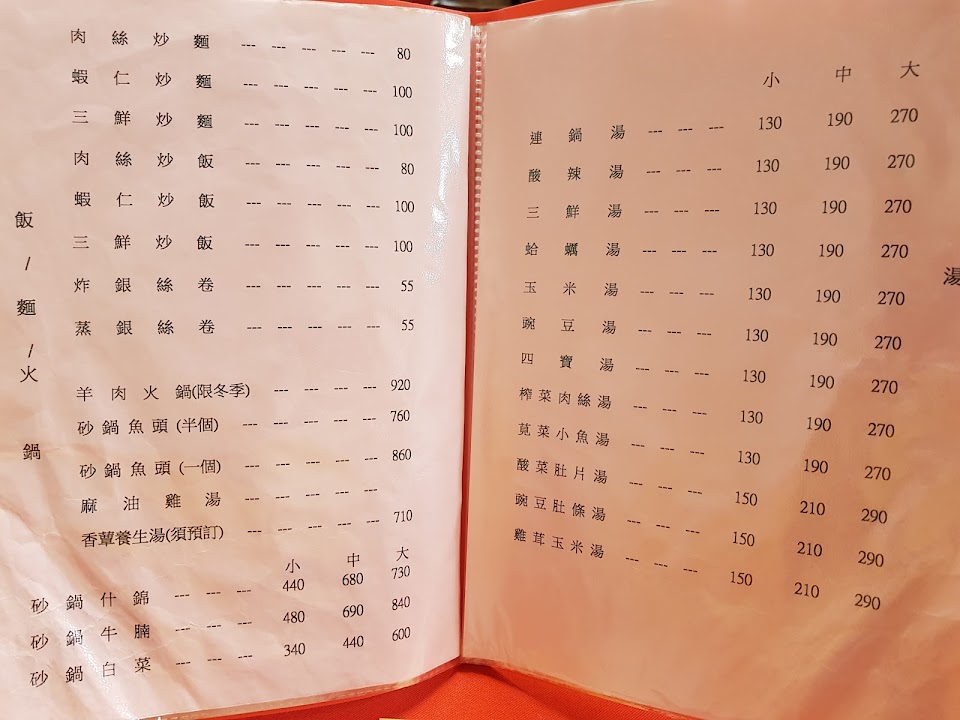 飯/麵/火鍋
肉絲炒麵 --- --- --- --- --- 80
蝦仁炒麵 --- --- --- --- --- 100
三鮮炒麵 --- --- --- --- --- 100
肉絲炒飯 --- --- --- --- --- 80
蝦仁炒飯 --- --- --- --- --- 100
三鮮炒飯 --- --- --- --- --- 100
炸銀絲卷 --- --- --- --- --- 55
蒸銀絲卷 --- --- --- --- --- 55
羊肉火鍋(限冬季) --- --- --- --- 920
砂鍋魚頭(半個) --- --- --- --- 760
砂鍋魚頭(一個) --- --- --- --- 860
麻油雞湯 --- --- --- --- ---
香蕈養生湯(須預訂) --- --- --- --- --- 710
小 中 大
砂鍋什錦 --- --- --- 440 680 730
砂鍋牛腩 --- --- --- 480 690 840
砂鍋白菜 --- --- --- 340 440 600
湯
小 中 大
連鍋湯 --- --- --- 130 190 270
酸辣湯 --- --- --- 130 190 270
三鮮湯 --- --- --- 130 190 270
蛤蠣湯 --- --- --- 130 190 270
玉米湯 --- --- --- 130 190 270
豌豆湯 --- --- --- 130 190 270
四寶湯 --- --- --- 130 190 270
榨菜肉絲湯 --- --- --- 130 190 270
莧菜小魚湯 --- --- --- 130 190 270
酸菜肚片湯 --- --- --- 150 210 290
豌豆肚條湯 --- --- --- 150 210 290
雞茸玉米湯 --- --- --- 150 210 290